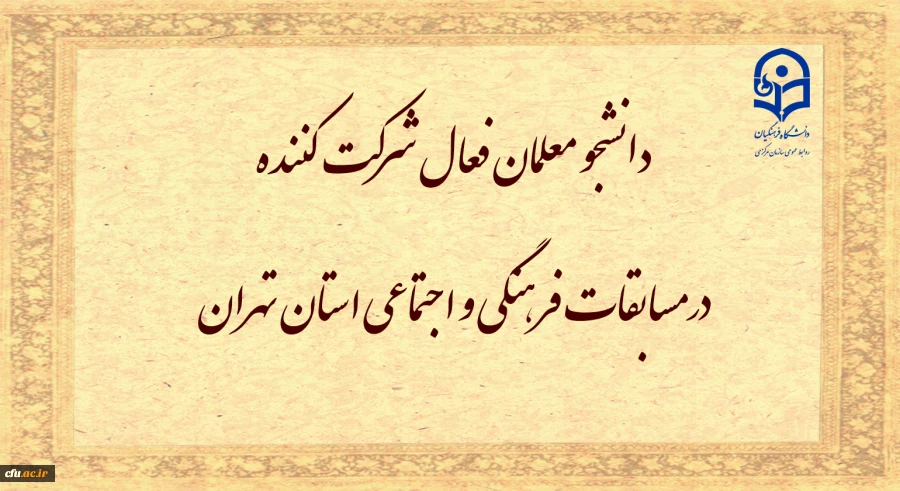 دانشگاه فرهنگیان
روابط عمومی سازمان مرکزی
دانشجو معلمان فعال شرکت کننده
در مسابقات فرهنگی و اجتماعی استان تهران
cfu.ac.ir